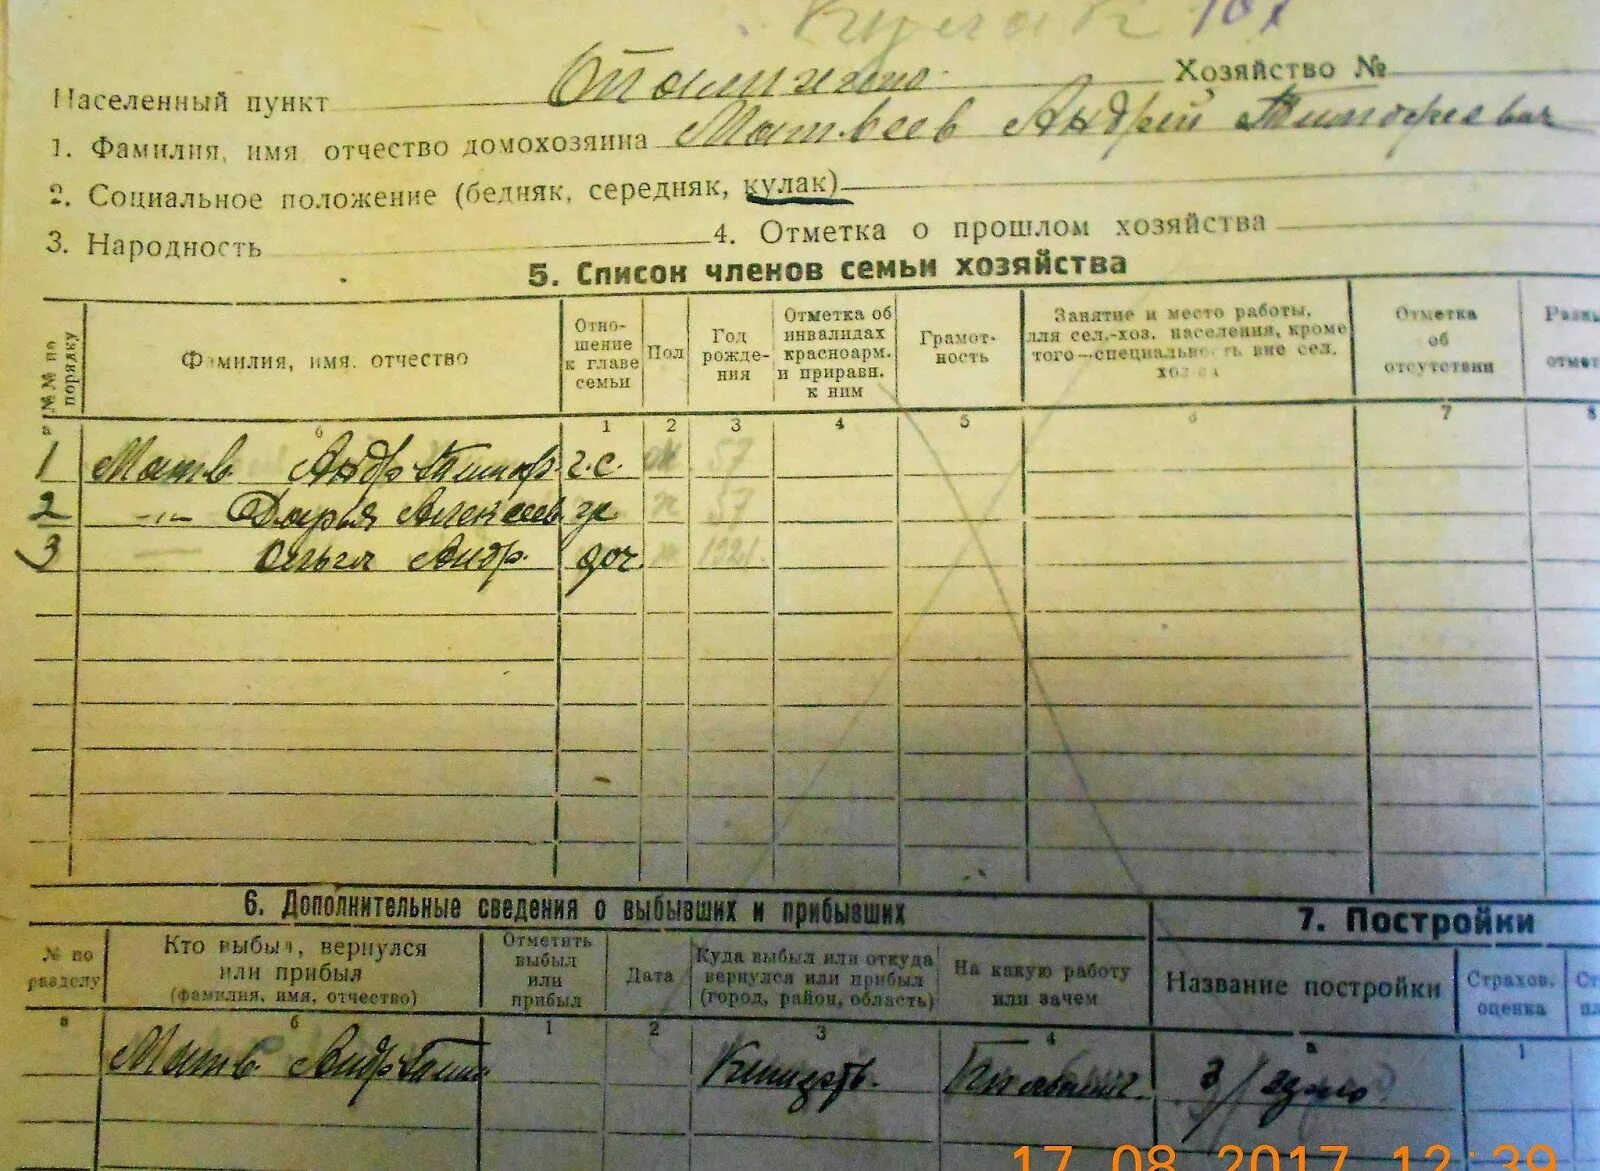 Кулак
Населенный пункт Хозяйство №
1. Фамилия, имя отчество домохозяина Матвеев Андрей Тимофеевич
2. Социальное положение (бедняк, середняк, кулак)
3. Народность 4. Отметка о прошлом хозяйства
5. Список членов семьи хозяйства
№№ по порядку
Фамилия, имя, отчество
Отно-
шение
к главе
семьи
Пол
Год
рожде-
ния
Отметка об
инвалидах
красноарм.
и приравн.
к ним
Грамот-
ность
Занятие и место работы,
для сел.-хоз. населения, кроме
того—специальность вне сел.
хоз-ва
Отметка
об
отсутствии
а б 1 2 3 4 5 6 7 8
1 Матв. Андр Тимоф. г.с. 57
2 -"- Дарья Алексеев 57
3 — Ольга Андр. доч. 1921.
6. Дополнительные сведения о выбывших и прибывших
7. Постройки
№ по
разделу
Кто выбыл, вернулся
или прибыл
(фамилия, имя, отчество)
Отметить
выбыл
или
прибыл
Дата
Куда выбыл или откуда
вернулся или прибыл
(город, район, область)
На какую работу
или зачем
Название постройки
Страхов.
оценка
а б 1 2 3 4 а 1
Матв. Андр Тим
17 08 2017 12:39